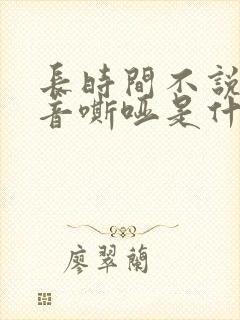 長時間不說
音嘶啞是什
廖翠蘭